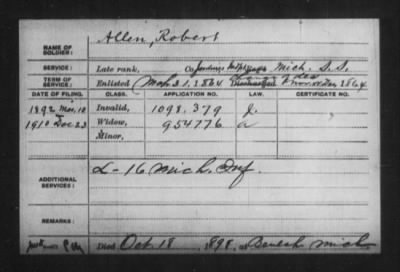 Allen, Robert
NAME OF SOLDIER:
SERVICE: Late rank, Co. Mich. S.S.
TERM OF SERVICE: Enlisted Mch 31, 1864 Discharged 1864
DATE OF FILING. CLASS. APPLICATION NO. LAW. CERTIFICATE NO.
1892 Mar. 10 Invalid, 1098.379 J.
1910 Dec 23 Widow, 954776 a
Minor,
ADDITIONAL SERVICES: L-16 Mich. Inf.
REMARKS:
Died Oct. 18, 1898, at Mich.